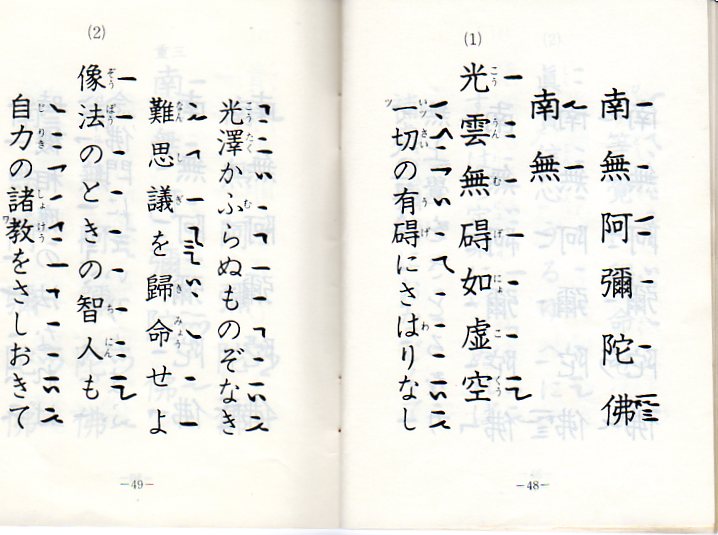 (1)
南無阿彌陀佛
南無
光雲無碍如虚空
一切の有碍にさはりなし
-48-
光澤かふらぬものぞなき
難思議を歸命せよ
(2)
像法のときの智人も
自力の諸教をさしおきて
-49-